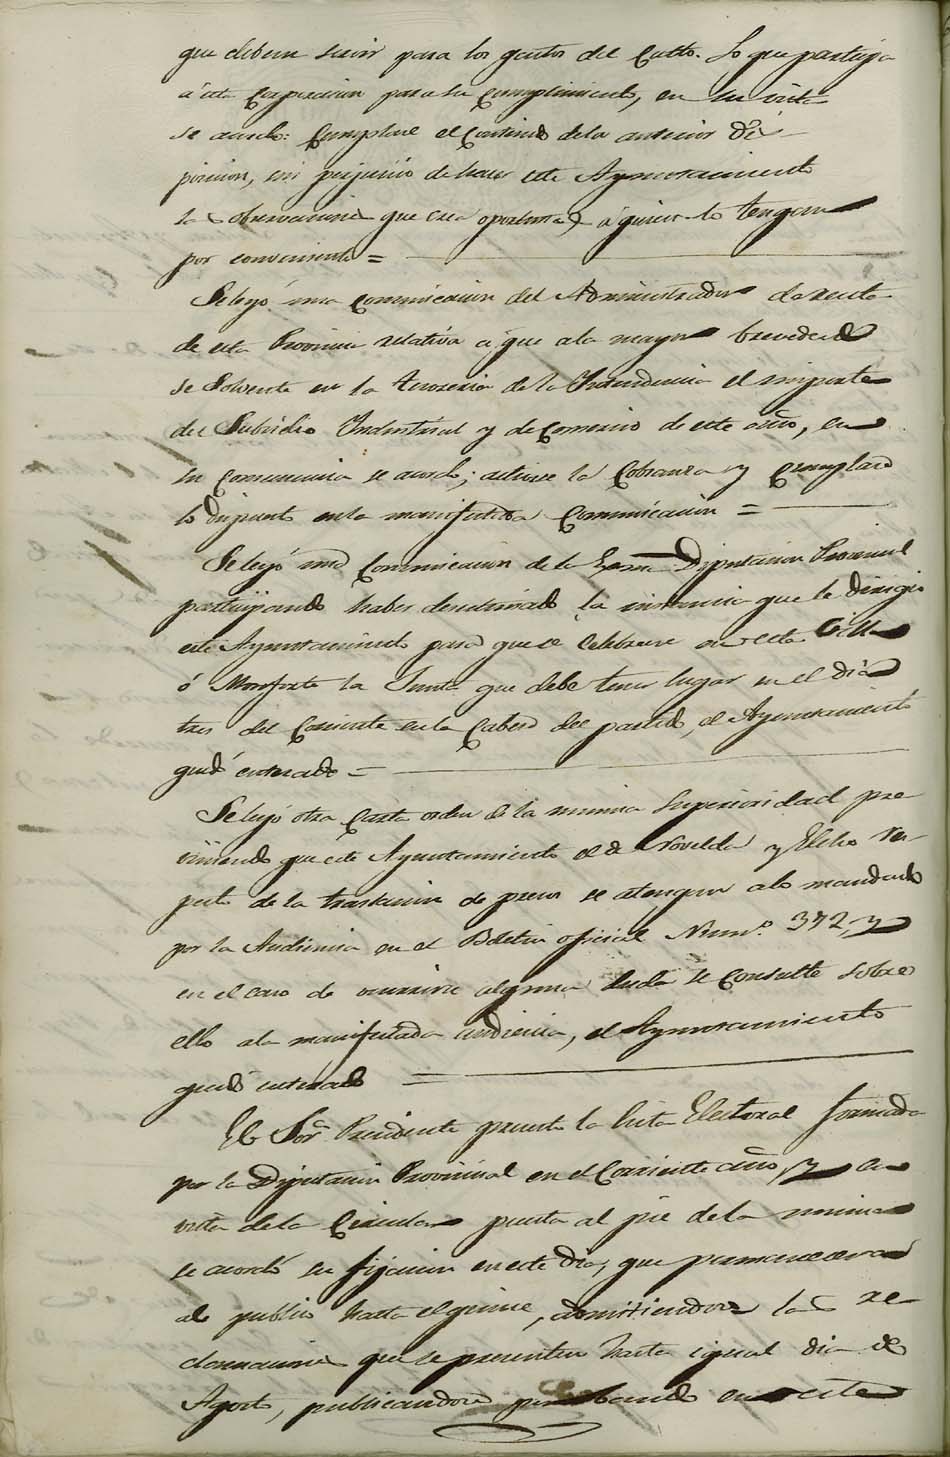 que deben servir para los gastos del Culto. Lo que participa
á esta Corporacion para su Cumplimiento, en su vista
se acordó: Cumplase el Contenido de la anterior dis-
posicion, sin perjuicio de hacer este Ayuntamiento
las observaciones que crea oportunas á quien lo tengan
por conveniente =
Se leyó una Comunicacion del Administrador de rentas
de esta Provincia relativa á que ala mayor brevedad
se Solvente en la tesoreria de la Yntendencia el importe
del Subsidio Yndustrial y de Comercio de este año, en
su Consecuencia se acordó; activese la Cobranza y Cumplase
lo dispuesto en la manifestada Comunicacion =
Se leyó una Comunicacion de la Exma Diputacion Provincial
participando haber desestimado la instancia que le dirigió
este Ayuntamiento para que se Celebrase en esta Villa
ó Monforte la Junta que debe tener lugar en el dia
tres del Corriente en la Cabeza del partido, el Ayuntamiento
quedó enterado =
Se leyó otra Carta orden de la misma Superioridad pre-
viniendo que este Ayuntamiento el de Novelda y Elche res-
pecto de la traslacion de presos se atengan alo mandado
por la Audiencia en el Boletin oficial Num.º 392, y
en el caso de ocurrirse alguna duda se Consulte sobre
ello ala manifestada audiencia, el Ayuntamiento
quedó enterado =
El Sor. Presidente presentó la lista Electoral formada
por la Diputacion Provincial en el Corriente año, y en
vista de la Circular puesta al pie de la misma
se acordó su fijacion en este dia, que permanecera
al publico hasta el quince, admitiendose las re-
clamaciones que se presenten hasta igual dia de
Agosto, publicandose por bando en este